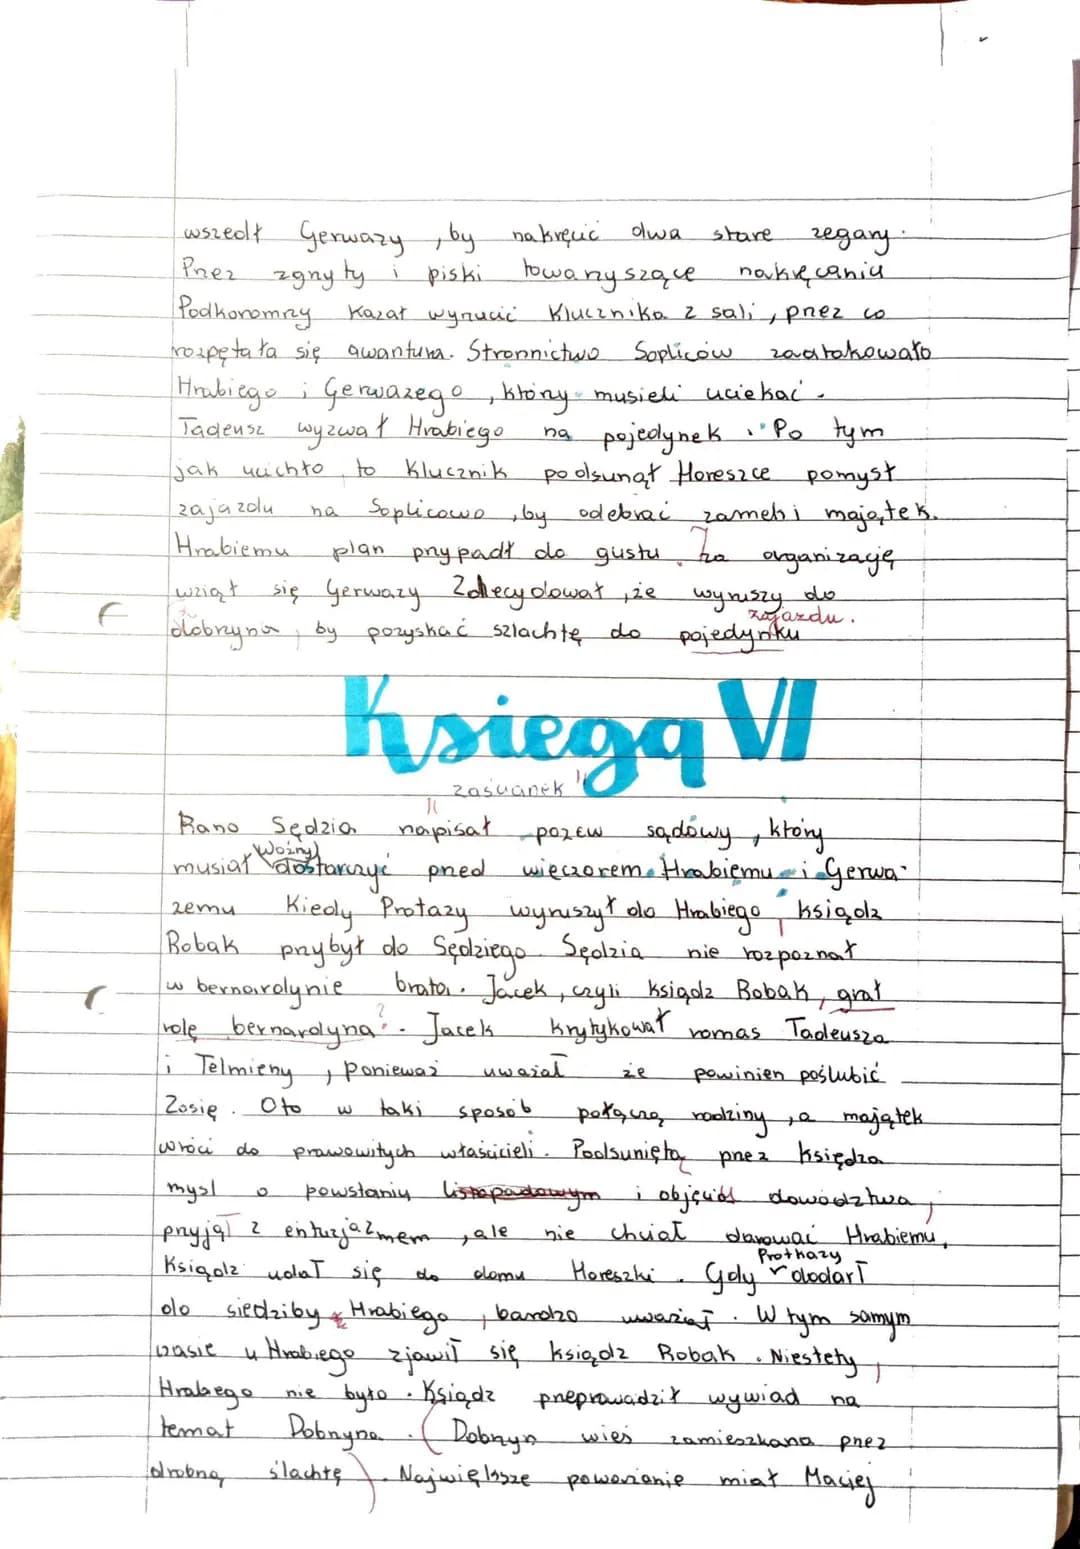 wszedł Gerwazy, by nakręcić dwa stare zegary.
Przez zgrzyty i piski towarzyszące nakręcaniu
Podkoromzy kazał wyrzucić Klucznika z sali, przez co
rozpętała się awantura. Stronnictwo Sopliców zaatakowało
Hrabiego i Gerwazego, który musieli uciekać.
Tadeusz wyzwał Hrabiego na pojedynek. Po tym
jak ucichło, to Klucznik podsunął Horeszce pomysł
zajazdu na Soplicowo, by odebrać zamek i majątek.
Hrabiemu plan przypadł do gustu. Za organizację
wziął się Gerwazy Zdecydował, że wyruszy do
zajazdu.
dobrzyna, by pozyskać szlachtę do pojedynku
Księga VI
zaścianek "
Rano Sędzia napisał pozew sądowy, który
musiał Woźny dostarczyć przed wieczorem Hrabiemu i Gerwa-
zemu Kiedy Protazy wyruszył do Hrabiego, ksiądz
Robak przybył do Sędziego. Sędzia nie rozpoznał
w bernardynie brata. Jacek, czyli ksiądz Robak, grał
rolę bernardyna?. Jacek krytykował romas Tadeusza
i Telmieny, ponieważ uważał że powinien poślubić
Zosię. Oto w taki sposób połączą rodziny, a majątek
wróci do prawowitych właścicieli. Podsuniętą przez księdza
mysl o powstaniu listopadowym i objęciś dowództwa,
przyjął z entuzjazmem, ale nie chciał darować Hrabiemu.
Ksiądz udał się do domu Horeszki. Gdy Prothazy dodarł
do siedziby Hrabiego, bardzo uważał. W tym samym
czasie u Hrabiego zjawił się ksiądz Robak. Niestety,
Hrabego nie było. Ksiądz przeprowadził wywiad na
temat Dobrzyna. (Dobrzyn wieś zamieszkana przez
drobną ślachtę). Największe poważanie miał Maciej